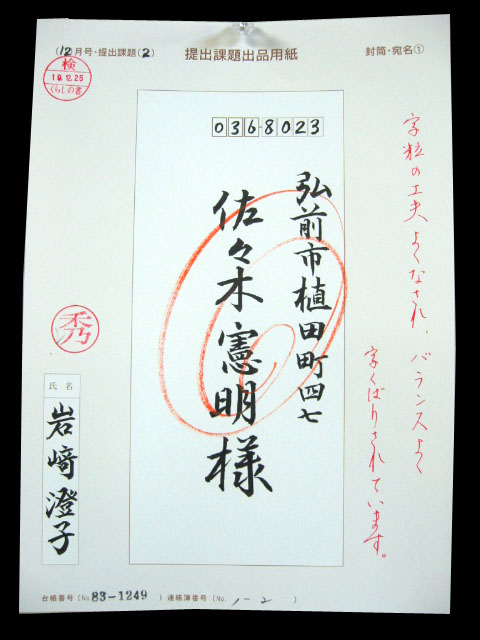 (12月号・提出課題(2)
提出課題出品用紙
封筒・宛名①
検
19.12.25
くらしの書
0368023
弘前市植田町四七
佐々木憲明様
字粒の工夫よくなされ、バランスよく
字くばりされています。
秀
氏名
岩﨑澄子
台帳番号(No.83-1249)連絡簿番号(No.1-2)